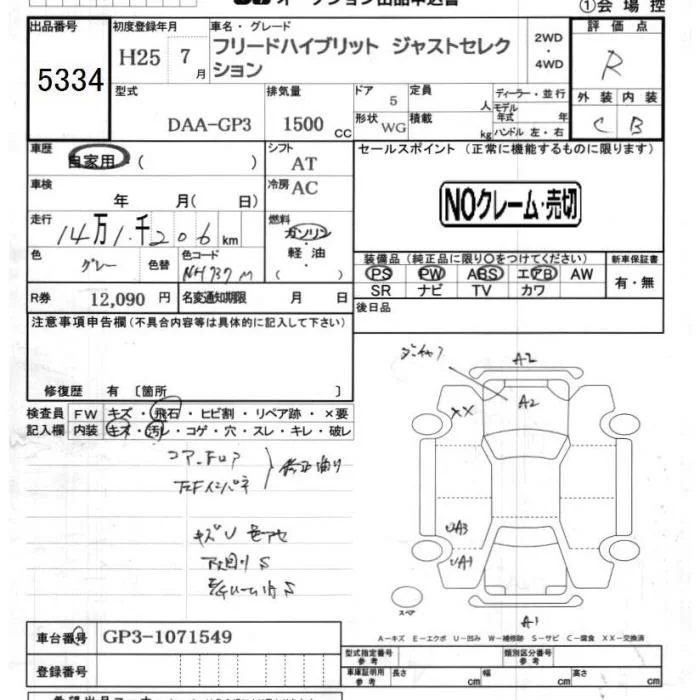 オークション出品申込書
①会場控
出品番号 初度登録年月 車名・グレード 評価点
5334 H25 7月 フリードハイブリット ジャストセレクション 2WD・4WD R
型式 排気量 ドア 定員 ディーラー・並行 外装 内装
DAA-GP3 1500 CC 5 人 モデル年式 年 C B
形状 WG 積載 kg ハンドル 左・右
車歴 自家用・( ) シフト AT セールスポイント (正常に機能するものに限ります)
車検 年 月( 日) 冷房 AC
NOクレーム・売切
走行 14万1千206km 燃料 ガソリン・軽油・( )
色 グレー 色替 色コード NH737M
装備品(純正品に限り○をつけてください) 新車保証書
PS PW ABS エアB AW 有・無
SR ナビ TV カワ
R券 12,090 円 名変通知期限 月 日 後日品
注意事項申告欄(不具合内容等は具体的に記入して下さい)
修復歴 有 〔箇所 〕
検査員記入欄 FW キズ・飛石・ヒビ割・リペア跡・×要
内装 キズ・汚レ・コゲ・穴・スレ・キレ・破レ
A2
A2
XX
UA3
UA1
A1
スペア
キズU
S
S
A-キズ E-エクボ U-凹み W-補修跡 S-サビ C-腐食 XX-交換済
車台番号 GP3-1071549
型式指定番号 参考 類別区分番号 参考
登録番号
車庫証明用 参考 長さ cm 幅 cm 高さ cm